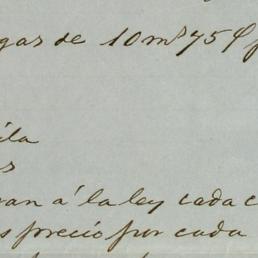 gas de 10 m.s 75 ¢ p
la
s
an á la ley cada c
s precio por cada